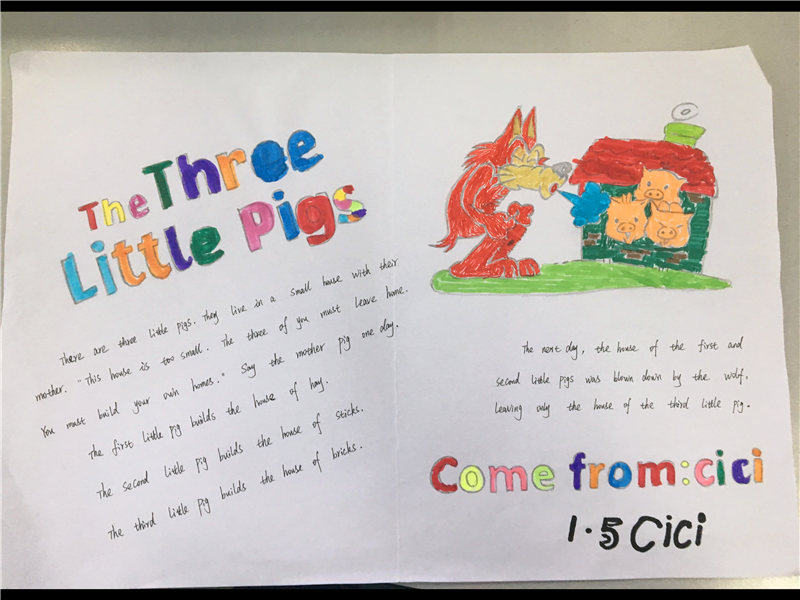 The Three
Little Pigs
There are three little pigs. They live in a small house with their
mother. "This house is too small. The three of you must leave home.
You must build your own homes." Say the mother pig one day.
The first little pig builds the house of hay.
The second little pig builds the house of sticks.
The third little pig builds the house of bricks.
The next day, the house of the first and
second little pigs was blown down by the wolf,
leaving only the house of the third little pig.
Come from:cici
1.5 Cici